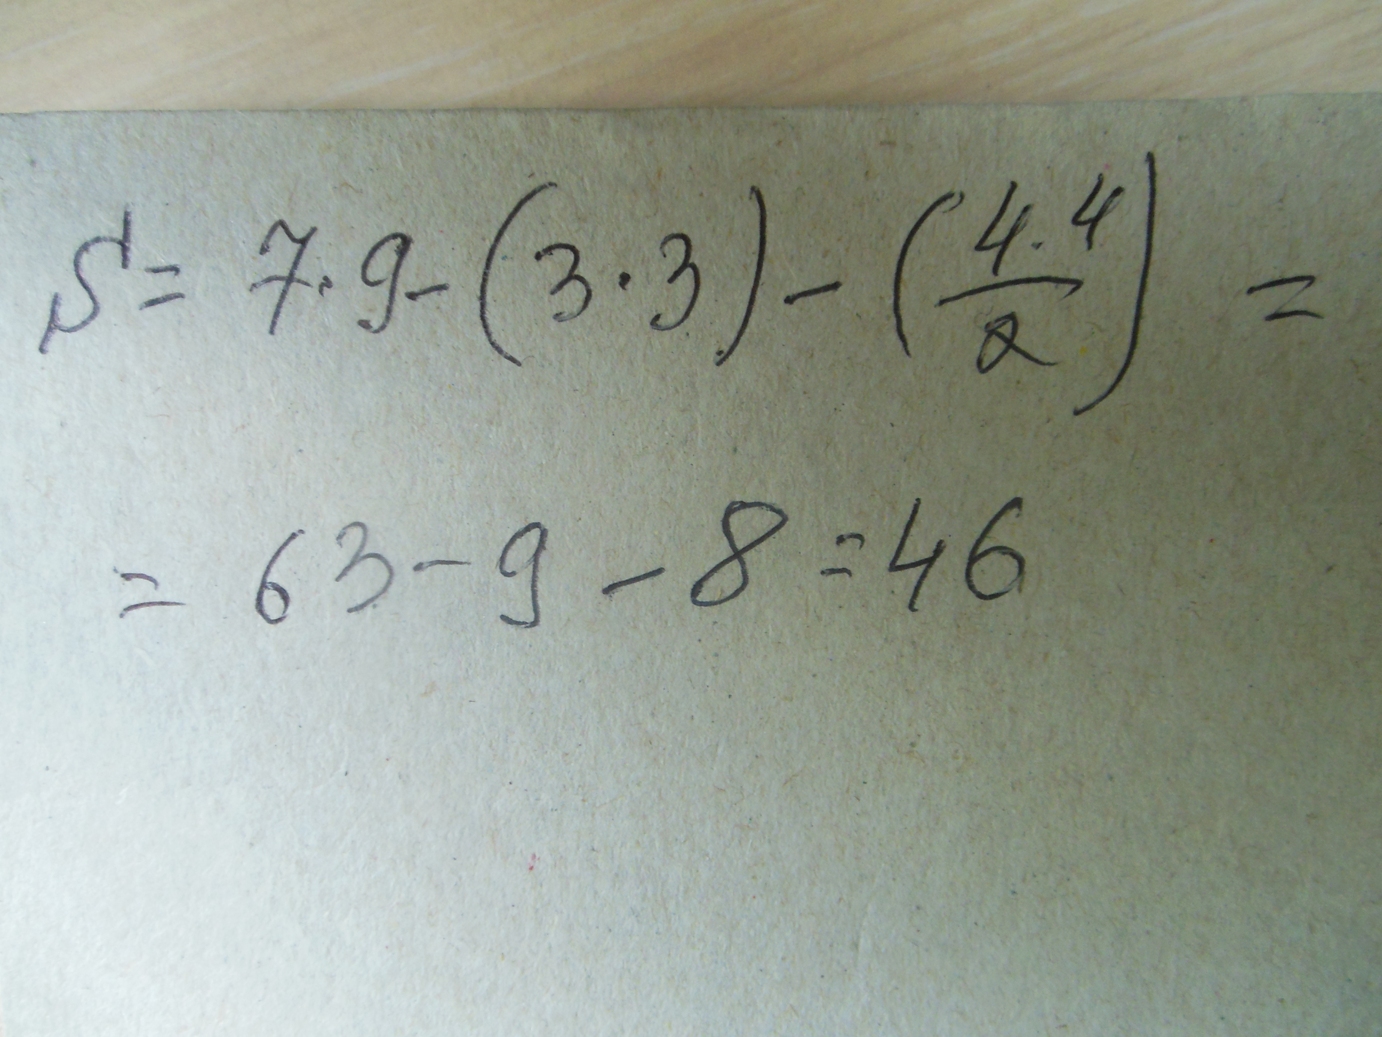 S = 7·9-(3·3)-(4·4/2) =
= 63-9-8=46